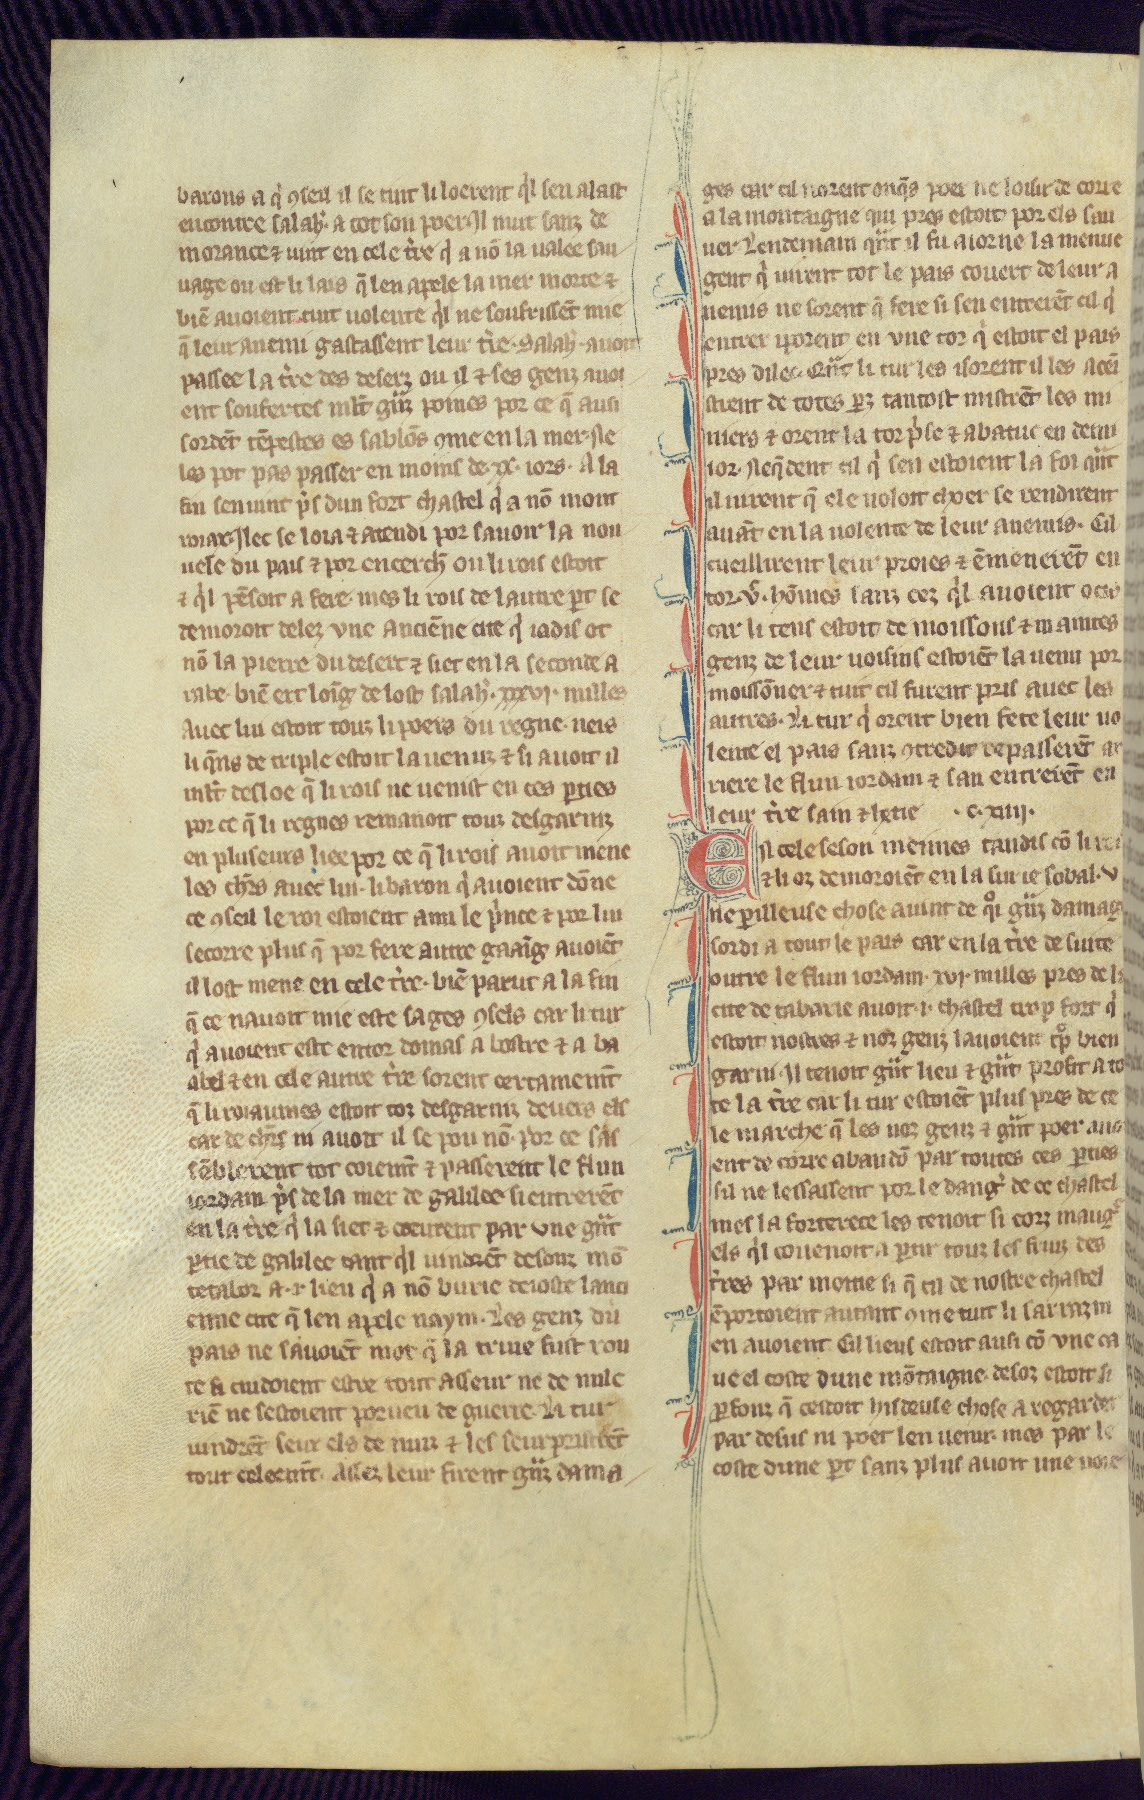 barons a q̓ ꝯseil il se tint li loerent q̓l sen alast
encontre salah̓. a tot son poer. Il mut sanz de
morance ⁊ vint en cele t̓re q̓ a nō la valee sau
vage ou est li lais q̄ len apele la mer morte ⁊
biē avoient tuit volente q̓l ne soufrissēt mie
q̄ leur anemi gastassent leur t̓re. Salah̓. avoit
passee la t̓re des deserz ou il ⁊ ses genz avoi
ent soufertes ml̄t gͣnz poines por ce q̄ ausi
sordēt tēpestes es sablōs ꝯme en la mer. Ne
les pot pas passer en moins de .xx. iors. A la
fin sen vint p̓s dun fort chastel q̓ a nō mont
roiax. Ilec se loia ⁊ atendi por savoir la nou
vele du pais ⁊ por encerch̓ ou li rois estoit
⁊ q̓l pēsoit a fere. mes li rois de lautre ꝑt se
demoroit delez vne anciēne cite q̓ iadis ot
nō la pierre du desert ⁊ siet en la seconde a
rabe. biē ert loīg de lost salah̓. .xxxvj. milles
Avec lui estoit touz li poers du regne. neis
li q̄ns de triple estoit la venuz ⁊ si avoit il
ml̄t desloe q̄ li rois ne venist en ces ꝑties
por ce q̄ li regnes remanoit touz desgarniz
en pluseurs liex por ce q̄ li rois avoit mene
les ch̓rs avec lui. li baron q̓ avoient dōne
ce ꝯseil le roi estoient ami le p̓nce ⁊ por lui
secorre plus q̄ por fere autre gaaīg avoiēt
il lost mene en cele t̓re. biē parut a la fin
q̄ ce navoit mie este sages ꝯsels car li tur
q̓ avoient este entor domas a bostre ⁊ a ba
abel ⁊ en cele autre t̓re sorent certainemͣt
q̄ li roiaumes estoit toz desgarniz devers els
car de ch̓rs ni avoit il se pou nō. por ce sas
sēblerent tot coiemͣt ⁊ passerent le flun
iordain p̓s de la mer de galilee si entrerēt
en la t̓re q̓ la siet ⁊ coururent par vne gͣnt
ꝑtie de galilee tant q̓l vindrēt desouz mō
tetabor a .i. lieu q̓ a nō burie deioste lanci
enne cite q̄ len apele naym. Les genz du
pais ne savoiēt mot q̄ la trive fust rou
te si cuidoient estre tout asseur ne de nule
riē ne sestoient porveu de guerre. Li tur
vindrēt seur els de nuiz ⁊ les seurpristrēt
tout celeemͣt. Assez leur firent gͣnz dama
ges car cil norent onq̄s poer ne loisir de corre
a la montaigne qui pres estoit por els sau
ver. Lendemain qͣnt il fu aiorne la menue
gent q̓ virent tot le pais covert de leur a
nemis ne sorent q̄ fere si sen entrerēt cil q̓
entrer i porent en vne tor q̓ estoit el pais
pres dilec. Qͣnt li tur les i sorent il les acei
strent de totes ꝑz tantost mistrēt les mi
niers ⁊ orent la tor p̓se ⁊ abatue en demi
ior. Neq̄dent cil q̓ sen estoient la foi qͣnt
il virent q̄ ele voloit cheer se rendirent
avāt en la volente de leur anemis. Cil
cueillirent leur proies ⁊ ēmenerēt en
tor .v̓. hōmes sanz cez q̓l avoient ocis
car li tens estoit de moissons ⁊ maintes
genz de leur voisins estoiēt la venu por
moissōner ⁊ tuit cil furent pris avec les
autres. Li tur q̓ orent bien fete leur vo
lente el pais sanz ꝯtredit repasserēt ar
riere le flun iordain ⁊ san entrerēt en
leur t̓re sain ⁊ hetie .c. xiiij.
En cele seson meimes tandis cō li roi
⁊ li oz demoroiēt en la surie sobal. V
ne perilleuse chose avint de qͦi gͣnz damage
sordi a tout le pais car en la t̓re de suite
outre le flun iordain .xvj. milles pres de la
cite de tabarie avoit .i. chastel trop fort q̓
estoit nostres ⁊ noz genz lavoient tͦp bien
garni. Il tenoit gͣnt lieu ⁊ gͣnt profit a to
te la t̓re car li tur estoiēt plus pres de ce
le marche q̄ les noz genz ⁊ gͣnt poer avoi
ent de corre abandō par toutes ces ꝑties
sil ne lessassent por le dang̓ de ce chastel
mes la forterece les tenoit si corz maugͤ
els q̓l covenoit a ꝑtir touz les fruiz des
t̓res par moitie si q̄ cil de nostre chastel
ēportoient autant ꝯme tuit li sarrazin
en avoient. Cil lieus estoit ausi cō vne ca
ve el coste dune mōtaigne. desoz estoit si
ꝑfonz q̄ cestoit hisdeuse chose a regarder
par desus ni poet len venir. mes par le
coste dune ꝑt sanz plus avoit une voie